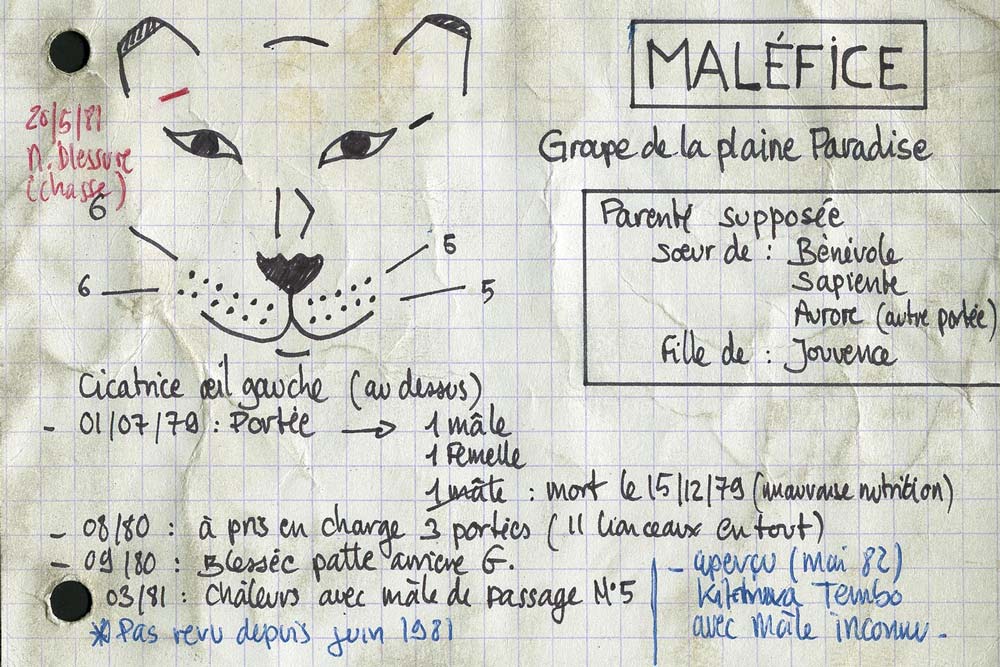 MALÉFICE
Groupe de la plaine Paradise
Parenté supposée
sœur de : Bénévole
Sapiente
Aurore (autre portée)
Fille de : Jouvence
20/5/81
n. Blessure
(chasse)
6
6
5
5
Cicatrice œil gauche (au dessus)
- 01/07/79 : Portée → 1 mâle
1 Femelle
1 mâle : mort le 15/12/79 (mauvaise nutrition)
- 08/80 : à pris en charge 3 portées (11 lionceaux en tout)
- 09/80 : Blessée patte arrière G.
03/81 : châleurs avec mâle de passage N°5
* Pas revu depuis juin 1981
- aperçu (mai 82)
Tembo
avec mâle inconnu.